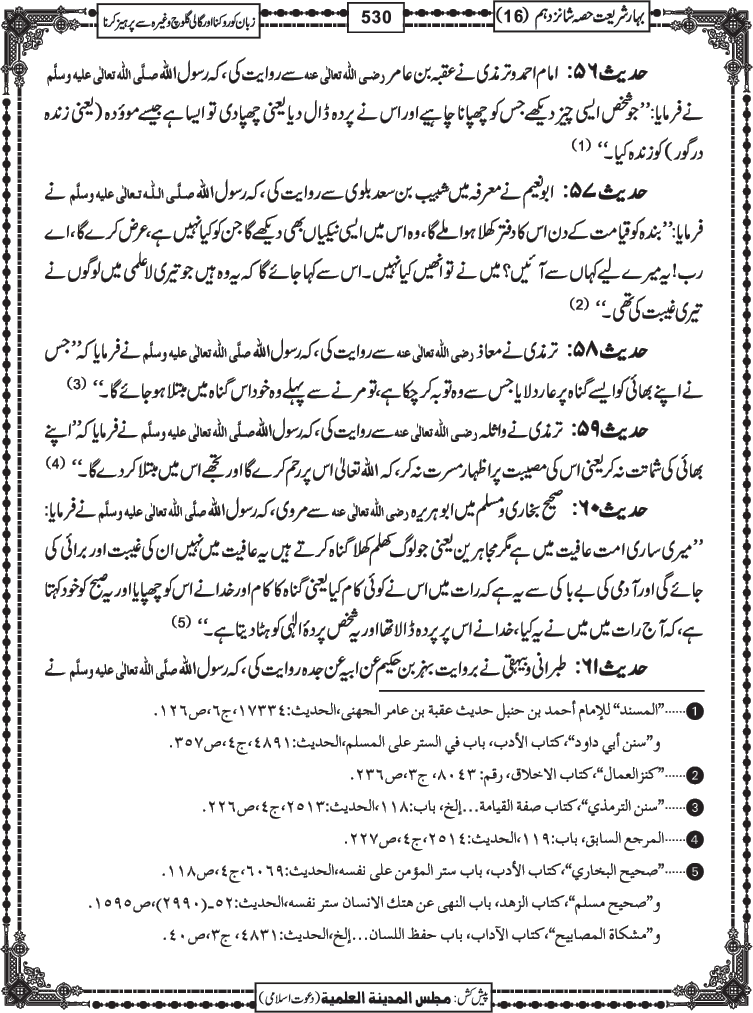 بہار شریعت حصہ شانزدہم (16)
530
زبان کو روکنا اور گالی گلوچ وغیرہ سے پرہیز کرنا
حدیث ۵۶: امام احمد و ترمذی نے عقبہ بن عامر رضی اللہ تعالٰی عنہ سے روایت کی، کہ رسول اللہ صلَّی اللہ تعالٰی علیہ وسلَّم
نے فرمایا: ’’جو شخص ایسی چیز دیکھے جس کو چھپانا چاہیے اور اس نے پردہ ڈال دیا یعنی چھپادی تو ایسا ہے جیسے موؤدہ (یعنی زندہ
درگور) کو زندہ کیا۔‘‘ (1)
حدیث ۵۷: ابو نعیم نے معرفہ میں شبیب بن سعد بلوی سے روایت کی، کہ رسول اللہ صلَّی اللہ تعالٰی علیہ وسلَّم نے
فرمایا: ’’بندہ کو قیامت کے دن اس کا دفتر کھلا ہوا ملے گا، وہ اس میں ایسی نیکیاں بھی دیکھے گا جن کو کیا نہیں ہے، عرض کرے گا، اے
رب! یہ میرے لیے کہاں سے آئیں؟ میں نے تو انھیں کیا نہیں۔ اس سے کہا جائے گا کہ یہ وہ ہیں جو تیری لاعلمی میں لوگوں نے
تیری غیبت کی تھی۔‘‘ (2)
حدیث ۵۸: ترمذی نے معاذ رضی اللہ تعالٰی عنہ سے روایت کی، کہ رسول اللہ صلَّی اللہ تعالٰی علیہ وسلَّم نے فرمایا کہ ’’جس
نے اپنے بھائی کو ایسے گناہ پر عار دلایا جس سے وہ توبہ کرچکا ہے، تو مرنے سے پہلے وہ خود اس گناہ میں مبتلا ہوجائے گا۔‘‘ (3)
حدیث ۵۹: ترمذی نے واثلہ رضی اللہ تعالٰی عنہ سے روایت کی، کہ رسول اللہ صلَّی اللہ تعالٰی علیہ وسلَّم نے فرمایا کہ ’’اپنے
بھائی کی شماتت نہ کر یعنی اس کی مصیبت پر اظہار مسرت نہ کر، کہ اللہ تعالٰی اس پر رحم کرے گا اور تجھے اس میں مبتلا کردے گا۔‘‘ (4)
حدیث ۶۰: صحیح بخاری و مسلم میں ابوہریرہ رضی اللہ تعالٰی عنہ سے مروی، کہ رسول اللہ صلَّی اللہ تعالٰی علیہ وسلَّم نے فرمایا:
’’میری ساری امت عافیت میں ہے مگر مجاہرین یعنی جو لوگ کھلم کھلا گناہ کرتے ہیں یہ عافیت میں نہیں ان کی غیبت اور برائی کی
جائے گی اور آدمی کی بے باکی سے یہ ہے کہ رات میں اس نے کوئی کام کیا یعنی گناہ کا کام اور خدا نے اس کو چھپایا اور یہ صبح کو خود کہتا
ہے، کہ آج رات میں میں نے یہ کیا، خدا نے اس پر پردہ ڈالا تھا اور یہ شخص پردۂ الٰہی کو ہٹادیتا ہے۔‘‘ (5)
حدیث ۶۱: طبرانی و بیہقی نے بروایت بہز بن حکیم عن ابیہ عن جدہ روایت کی، کہ رسول اللہ صلَّی اللہ تعالٰی علیہ وسلَّم نے
1......"المسند" للإمام أحمد بن حنبل حديث عقبة بن عامر الجهنی،الحديث:١٧٣٣٤،ج٦،ص١٢٦.
و"سنن أبي داود"،كتاب الأدب، باب في الستر على المسلم،الحديث:٤٨٩١،ج٤،ص٣٥٧.
2......"كنزالعمال"،كتاب الاخلاق، رقم: ٨٠٤٣، ج٣،ص٢٣٦.
3......"سنن الترمذي"،كتاب صفة القيامة...إلخ، باب:١١٨،الحديث:٢٥١٣،ج٤،ص٢٢٦.
4......المرجع السابق، باب:١١٩،الحديث:٢٥١٤،ج٤،ص٢٢٧.
5......"صحيح البخاري"،كتاب الأدب، باب ستر المؤمن على نفسه،الحديث:٦٠٦٩،ج٤،ص١١٨.
و"صحيح مسلم"،كتاب الزهد، باب النهى عن هتك الانسان ستر نفسه،الحديث:٥٢ـ(٢٩٩٠)،ص١٥٩٥.
و"مشكاة المصابيح"،كتاب الآداب، باب حفظ اللسان...إلخ،الحديث:٤٨٣١، ج٣،ص٤٠.
پیش کش: مجلس المدینة العلمیة (دعوت اسلامی)